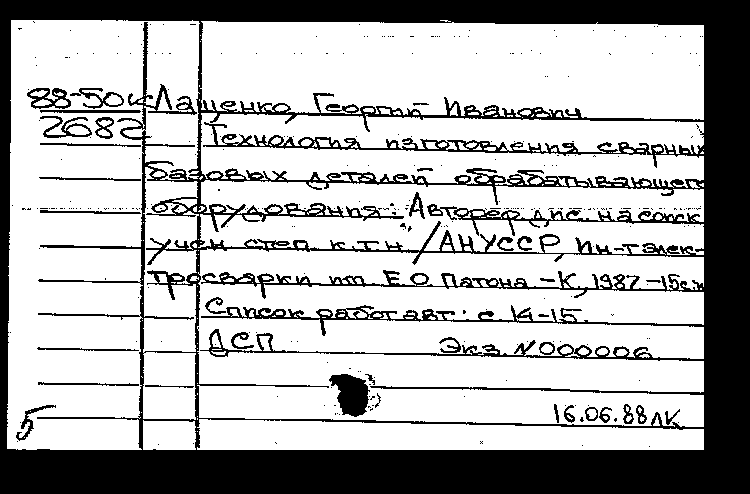 88-50к Лащенко, Георгий Иванович
2682 Технология изготовления сварных
базовых деталей обрабатывающего
оборудования: Автореф. дис. на соиск.
учен. степ. к.т.н. / АН УССР, Ин-т элек-
тросварки им. Е.О. Патона. - К., 1987 - 15 с.
Список работ авт.: с. 14-15.
ДСП Экз. N000006.
16.06.88 ЛК
5